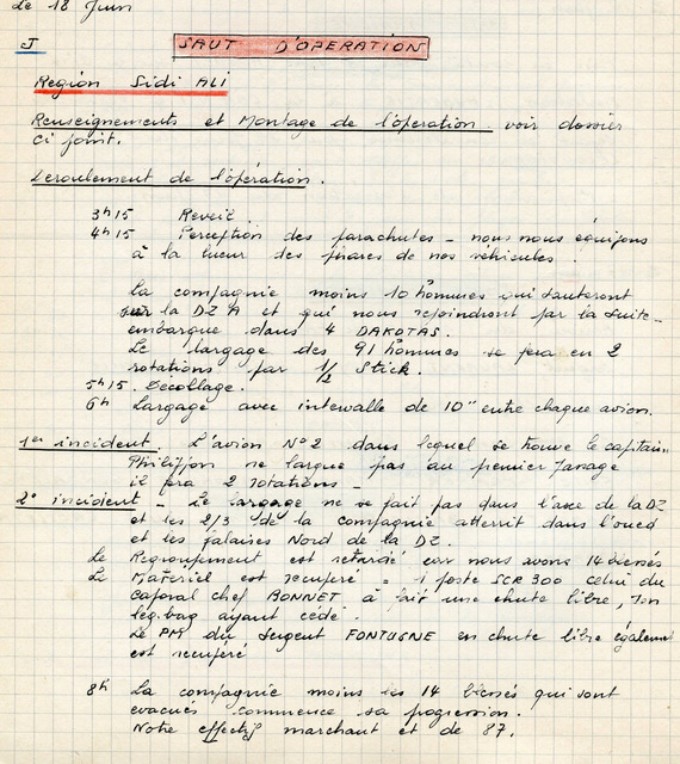 Le 18 Juin
J
SAUT D'OPERATION
Region Sidi Ali
Renseignements et Montage de l'operation. voir dossier
ci joint.
Deroulement de l'opération.
3h15 Reveil.
4h15 Perception des parachutes - nous nous équipons
à la lueur des phares de nos véhicules.
La compagnie moins 10 hommes qui sauteront
sur la DZ A et qui nous rejoindront par la suite -
embarque dans 4 DAKOTAS.
Le largage des 91 hommes se fera en 2
rotations par 1/2 Stick.
5h15. Décollage.
6h Largage avec intervalle de 10" entre chaque avion.
1er incident. L'avion No 2 dans lequel se trouve le capitain
Philippon ne largue pas au premier passage
il fera 2 rotations -
2e incident - Le largage ne se fait pas dans l'axe de la DZ
et les 2/3 de la compagnie atterrit dans l'oued
et les falaises Nord de la DZ.
Le Regroupement est retardé car nous avons 14 blessés
Le Matériel est recupéré - 1 poste SCR 300 celui du
caporal chef BONNET à fait une chute libre, son
leg.bag ayant cédé.
Le PM du Sergent FONTUGNE en chute libre également
est recupéré
8h La compagnie moins les 14 blessés qui sont
evacués commence sa progression.
Notre effectif marchant et de 87.